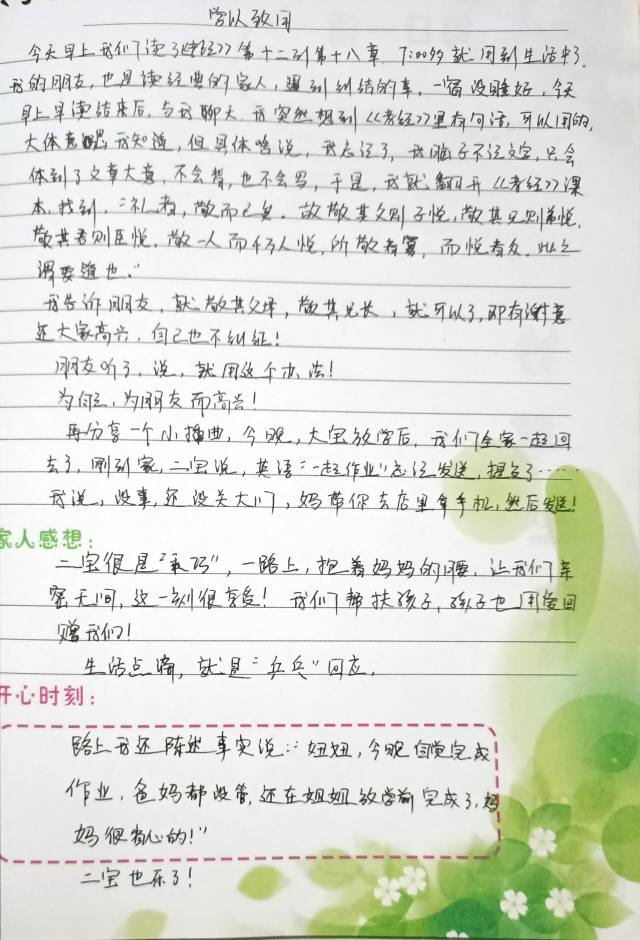 学以致用
今天早上我们读了《孝经》第十二到第十八章 7:00多就用到生活中了.
我的朋友,也是读经典的家人,遇到纠结的事,一宿没睡好,今天
早上早读结束后,与我聊天.我突然想到《孝经》里有句话,可以用的,
大体意思我知道,但具体啥说,我忘记了,我脑子不记文字,只会
体到了文章大意,不会背,也不会写,于是,我就翻开《孝经》课
本,找到,"礼者,敬而已矣.故敬其父则子悦,敬其兄则弟悦,
敬其君则臣悦.敬一人而千万人悦,所敬者寡,而悦者众.此之
谓要道也."
我告诉朋友,就敬其父母,敬其兄长,就可以了,即有谢意
还大家高兴,自己也不纠结!
朋友听了,说,就用这个办法!
为自己,为朋友而高兴!
再分享一个小插曲,今晚,大宝放学后,我们全家一起回
去了,刚到家,二宝说,英语"一起作业"忘记发送,提交了……
我说,没事,还没关大门,妈带你去店里拿手机,然后发送!
家人感想:
二宝很是"乖巧",一路上,抱着妈妈的腰.让我们亲
密无间,这一刻很享受!我们帮扶孩子,孩子也用爱回
赠我们!
生活点滴,就是"乒乓"回应.
开心时刻:
路上我还陈述事实说:"妞妞,今晚自觉完成
作业,爸妈都没管,还在姐姐放学前完成了,妈
妈很省心的!"
二宝也乐了!